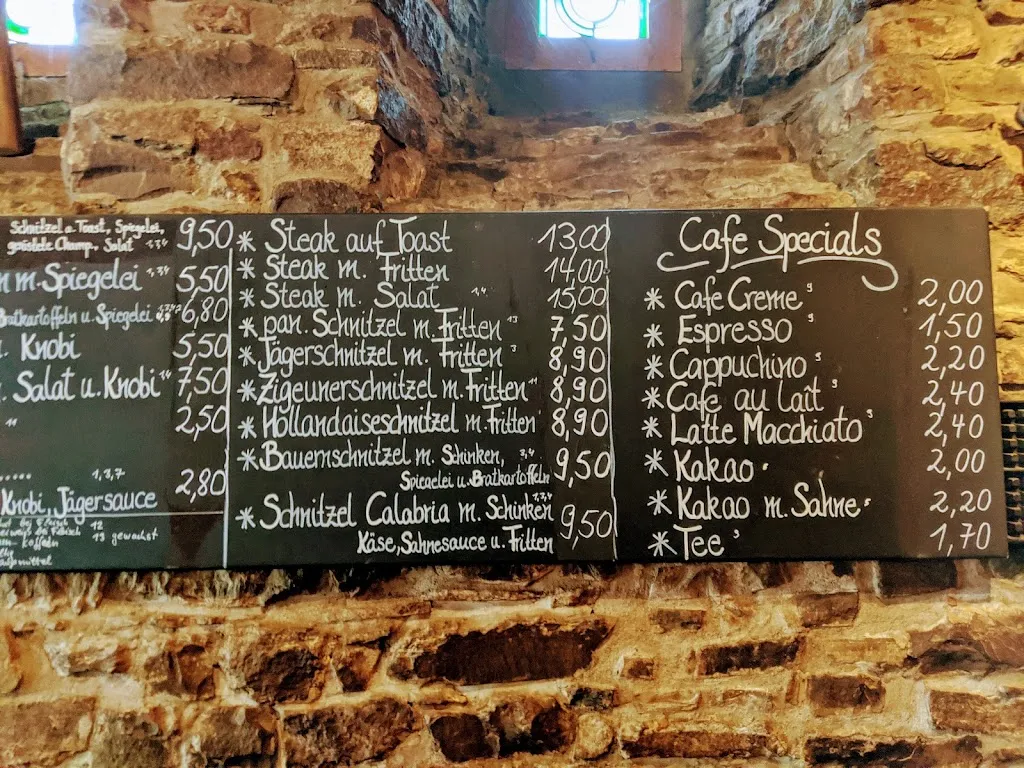 Schnitzel a. Toast, Spiegelei,
geröstete Champ., Salat 9,50
m. Spiegelei 5,50
Bratkartoffeln u. Spiegelei 6,80
Knobi 5,50
Salat u. Knobi 7,50
2,50
..... 1,3,7 2,80
Knobi, Jägersauce
12
13 gewachst
* Steak auf Toast 13,00
* Steak m. Fritten 14,00
* Steak m. Salat 15,00
* pan. Schnitzel m. Fritten 7,50
* Jägerschnitzel m. Fritten 8,90
* Zigeunerschnitzel m. Fritten 8,90
* Hollandaiseschnitzel m. Fritten 8,90
* Bauernschnitzel m. Schinken, 9,50
Spiegelei u. Bratkartoffeln
* Schnitzel Calabria m. Schinken 9,50
Käse, Sahnesauce u. Fritten
Cafe Specials
* Cafe Creme 2,00
* Espresso 1,50
* Cappuchino 2,20
* Cafe au Lait 2,40
* Latte Macchiato 2,40
* Kakao 2,00
* Kakao m. Sahne 2,20
* Tee 1,70